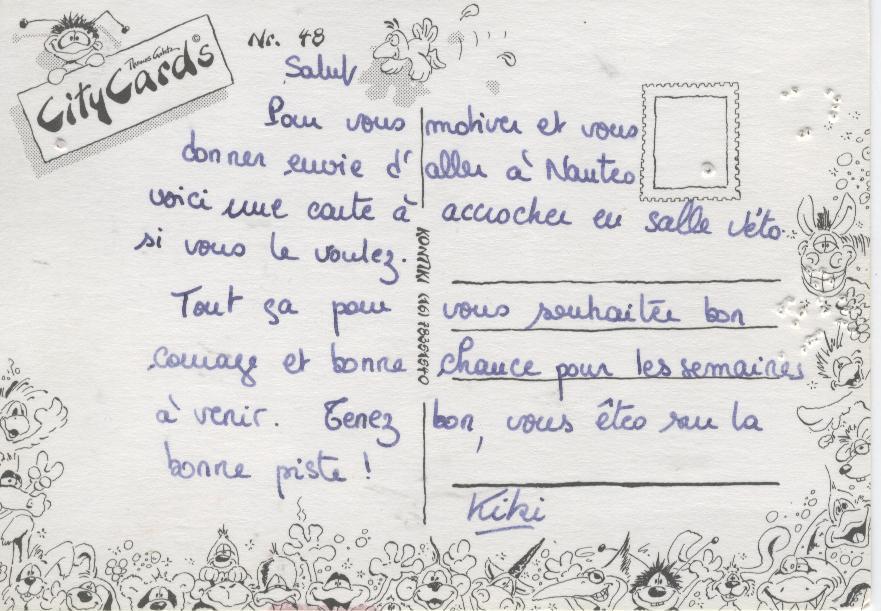 CityCards
Thomas Gatz ©
Nr. 48
Salut
Pour vous motiver et vous
donner envie d'aller à Nantes
voici une carte à accrocher en salle véto
si vous le voulez.
Tout ça pour vous souhaiter bon
courage et bonne chance pour les semaines
à venir. Tenez bon, vous êtes sur la
bonne piste !
Kiki
KONTIKI